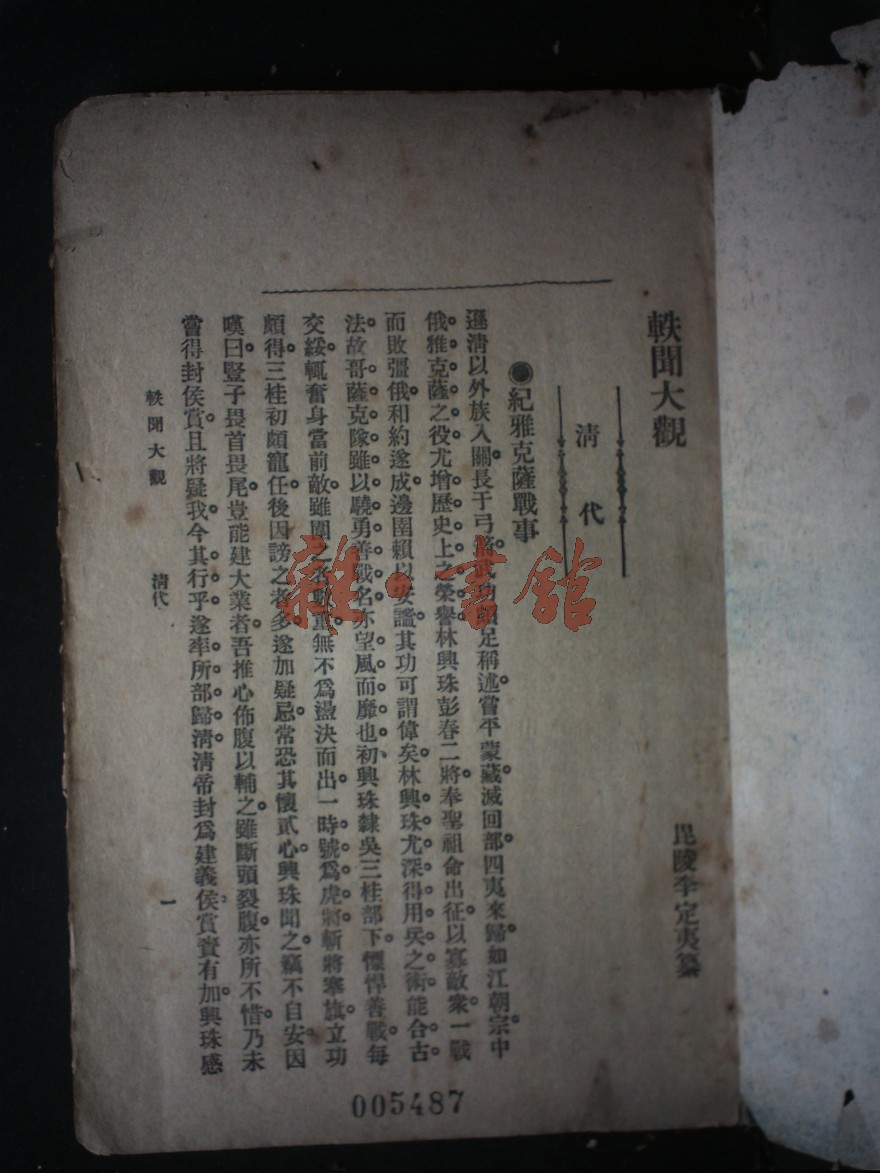 軼聞大觀
毘陵李定夷纂
清代
●紀雅克薩戰事
遜清以外族入關長于弓箭武功頗足稱述嘗平蒙藏滅回部四夷來歸如江朝宗中
俄雅克薩之役尤增歷史上之榮譽林興珠彭春二將奉聖祖命出征以寡敵衆一戰
而敗彊俄和約遂成邊圉賴以安謐其功可謂偉矣林興珠尤深得用兵之術能合古
法故哥薩克隊雖以驍勇善戰名亦望風而靡也初興珠隸吳三桂部下慓悍善戰每
交綏輒奮身當前敵雖圍之者數重無不爲盪決而出一時號爲虎將斬將搴旗立功
頗得三桂初頗寵任後因謗之者多遂加疑忌常恐其懷貳心興珠聞之竊不自安因
嘆曰豎子畏首畏尾豈能建大業者吾推心佈腹以輔之雖斷頭裂腹亦所不惜乃未
嘗得封侯賞且將疑我今其行乎遂率所部歸淸淸帝封爲建義侯賞賚有加興珠感
軼聞大觀 清代 一
005487
雜·書館